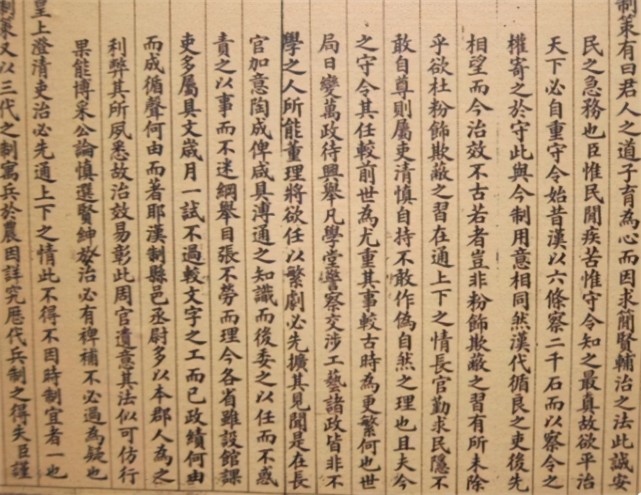 制策有曰君人之道子育為心而因求簡賢輔治之法此誠安
民之急務也臣惟民閒疾苦惟守令知之最真故欲平治
天下必自重守令始昔漢以六條察二千石而以察令之
權寄之於守此與今制用意相同然漢代循良之吏後先
相望而今治效不古若者豈非粉飾欺蔽之習有所未除
乎欲杜粉飾欺蔽之習在通上下之情長官勤求民隱不
敢自尊則屬吏清慎自持不敢作偽自然之理也且夫今
之守令其任較前世為尤重其事較古時為更繁何也世
局日變萬政待興舉凡學堂警察交涉工藝諸政皆非不
學之人所能董理將欲任以繁劇必先擴其見聞是在長
官加意陶成俾咸具溥通之知識而後委之以任而不惑
責之以事而不迷綱舉目張不勞而理今各省雖設館課
吏多屬具文歲月一試不過較文字之工而已政績何由
而成循聲何由而著耶漢制縣邑丞尉多以本郡人為之
利弊其所夙悉故治效易彰此周官遺意其法似可仿行
果能博采公論慎選賢紳於治必有裨補不必過為疑也
皇上澄清吏治必先通上下之情此不得不因時制宜者一也
制策又以三代之制寓兵於農因詳究歷代兵制之得失臣謹